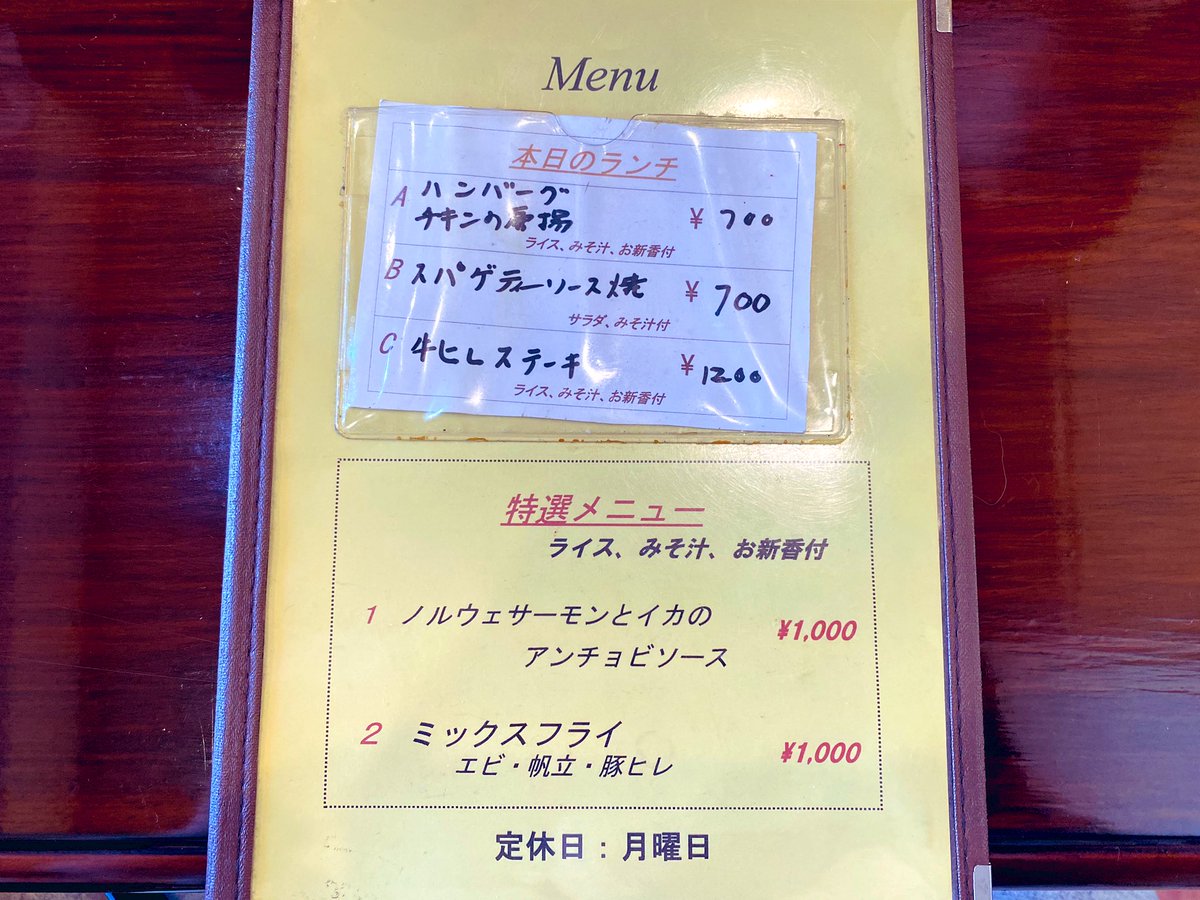 Menu
本日のランチ
A ハンバーグ
チキンの唐揚 ¥700
ライス、みそ汁、お新香付
B スパゲティーソース焼 ¥700
サラダ、みそ汁付
C 牛ヒレステーキ ¥1200
ライス、みそ汁、お新香付
特選メニュー
ライス、みそ汁、お新香付
1 ノルウェサーモンとイカの ¥1,000
アンチョビソース
2 ミックスフライ ¥1,000
エビ・帆立・豚ヒレ
定休日：月曜日